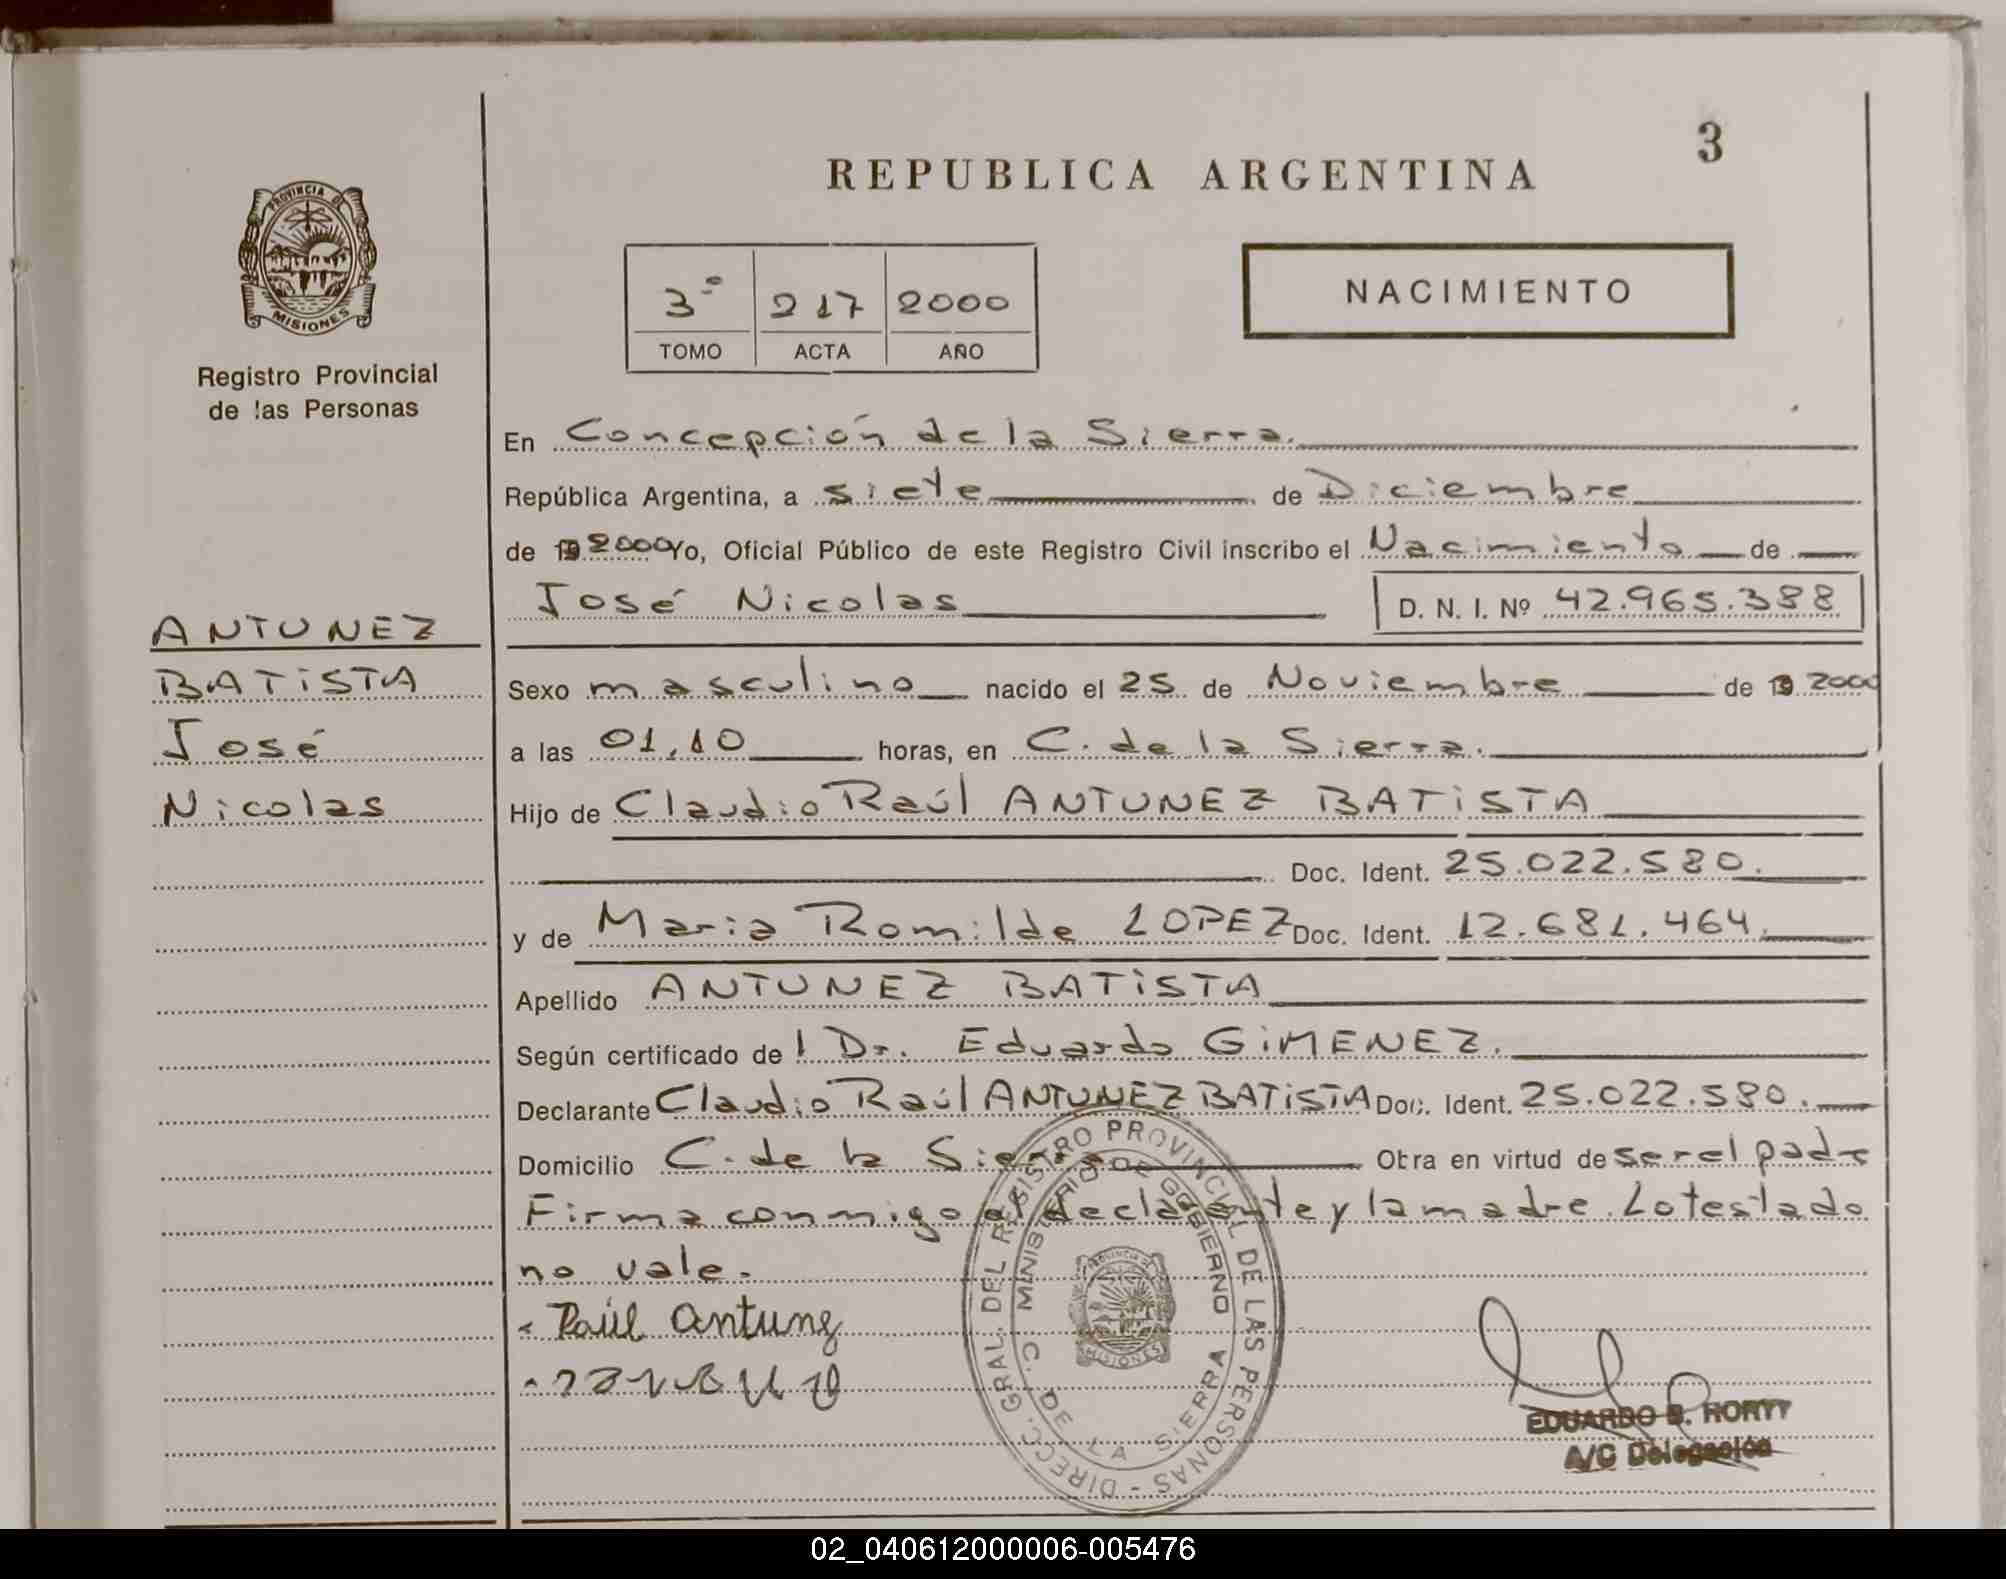 3
REPUBLICA ARGENTINA
PROVINCIA DE
MISIONES
Registro Provincial
de las Personas
3º 217 2000
TOMO ACTA AÑO
NACIMIENTO
En Concepción de la Sierra.
República Argentina, a siete de Diciembre
de 19 2000 Yo, Oficial Público de este Registro Civil inscribo el Nacimiento de
José Nicolas D. N. I. Nº 42.965.388
ANTUNEZ
BATISTA
José
Nicolas
Sexo masculino nacido el 25 de Noviembre de 19 2000
a las 01,10 horas, en C. de la Sierra.
Hijo de Claudio Raúl ANTUNEZ BATISTA
Doc. Ident. 25.022.580.
y de Maria Romilde LOPEZ Doc. Ident. 12.681.464.
Apellido ANTUNEZ BATISTA
Según certificado de l Dr. Eduardo GIMENEZ.
Declarante Claudio Raúl ANTUNEZ BATISTA Doc. Ident. 25.022.580.
Domicilio C. de la Sierra Obra en virtud de ser el padre
Firma conmigo el declarante y la madre. Lo testado
no vale.
Raúl Antunez
DIRECC. GRAL. DEL REGISTRO PROVINCIAL DE LAS PERSONAS -
MINISTERIO DE GOBIERNO
C. DE LA SIERRA
PROVINCIA DE
MISIONES
EDUARDO B. HORYY
A/C Delegación
02_040612000006-005476